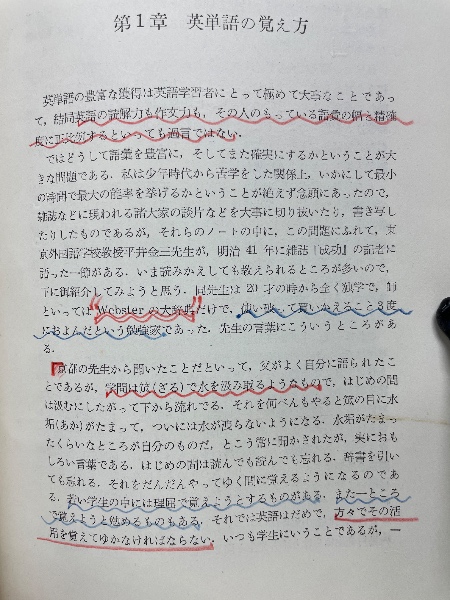 第1章　英単語の覚え方
英単語の豊富な獲得は英語学習者にとって極めて大事なことであっ
て，結局英語の読解力も作文力も，その人のもっている語彙の幅と精確
度に正比例するといっても過言ではない．
ではどうして語彙を豊富に，そしてまた確実にするかということが大
きな問題である．私は少年時代から苦学をした関係上，いかにして最小
の時間で最大の能率を挙げるかということが絶えず念頭にあったので，
雑誌などに現われる諸大家の談片などを大事に切り抜いたり，書き写し
たりしたものであるが，それらのノートの中に，この問題にふれて，東
京外国語学校教授平井金三先生が，明治 41 年に雑誌『成功』の記者に
語った一節がある．いま読みかえしても教えられるところが多いので，
下に御紹介してみようと思う．同先生は 20 才の時から全く独学で，師
といっては Webster の大辞典だけで，使い破って買いかえること3度
におよんだという勉強家であった．先生の言葉にこういうところがあ
る．
『京都の先生から聞いたことだといって，父がよく自分に語られたこ
とであるが，学問は笊(ざる)で水を汲み取るようなもので，はじめの間
は汲むにしたがって下から流れでる．それを何べんもやると笊の目に水
垢(あか)がたまって，ついには水が洩らないようになる．水垢がたまっ
たくらいなところが自分のものだ，とこう常に聞かされたが，実におも
しろい言葉である．はじめの間は読んでも読んでも忘れる．辞書を引い
ても忘れる．それをだんだんやってゆく間に覚えるようになるのであ
る．若い学生の中には理屈で覚えようとするものがある．また一ところ
で覚えようと勉めるものもある．それでは英語はだめで，方々でその活
用を覚えてゆかなければならない．いつも学生にいうことであるが，一